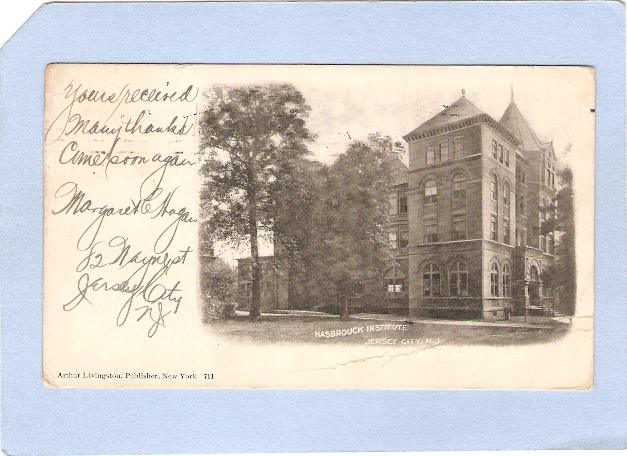 Yours received
Many thanks
Come soon again
Margaret C Hogan
82 Wayne st
Jersey City
NJ
HASBROUCK INSTITUTE
JERSEY CITY, N.J.
Arthur Livingston, Publisher, New York 711